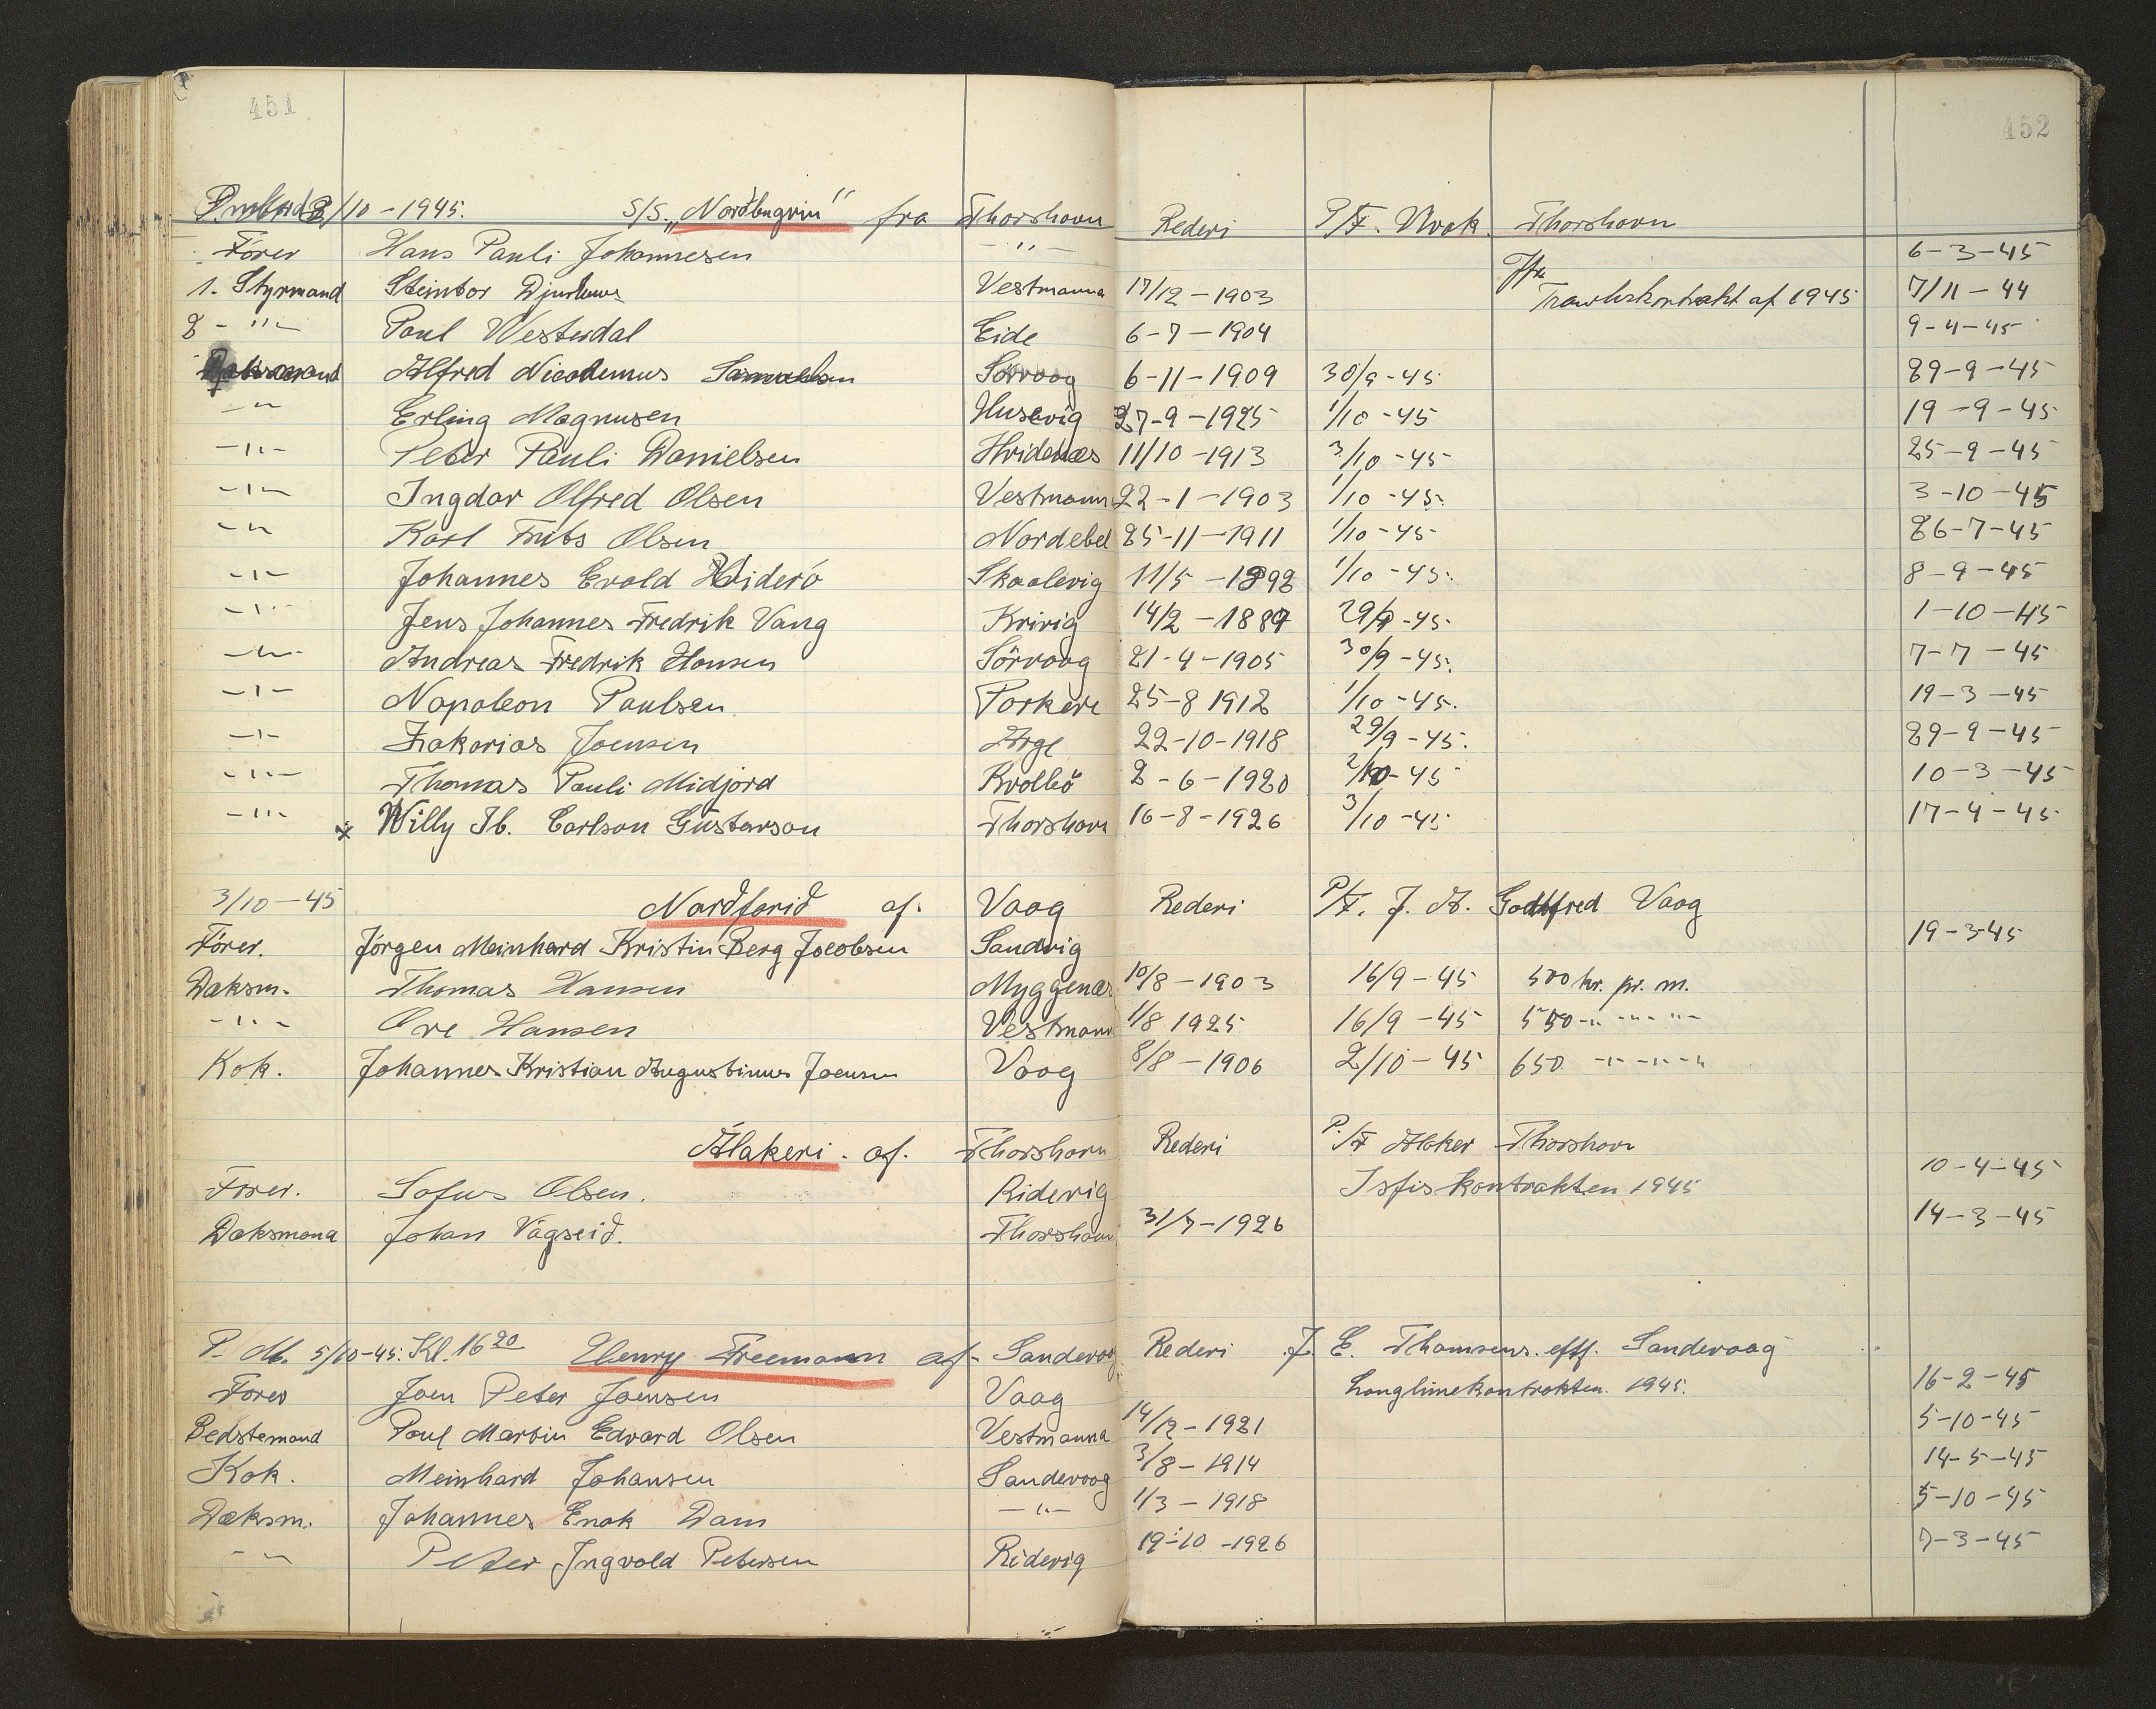 451 452
2/10 - 1945. S/S. „Nordbugvin" fra Thorshavn Rederi P/F. Thorshavn
Förer Hans Pauli Johannesen - " - 6-3-45
1. Styrmand Steintor Vestmanna 17/12 - 1903 Trawlerkontrakt af 1945 7/11 - 44
2 - " - Poul Westerdal Eide 6-7-1904 9-4-45
Alfred Nicodemus Samuelsen Sörvaag 6-11-1909 30/9-45 29-9-45
- " Erling Magnusen Husevig 27-9-1925 1/10-45 19-9-45
- " - Peter Pauli Danielsen Hvidenæs 11/10-1913 3/10-45 25-9-45
- " - Ingdor Olfred Olsen Vestmann 22-1-1903 1/10-45 3-10-45
- " Karl Frits Olsen Nordebel 25-11-1911 1/10-45 26-7-45
- " - Johannes Evald Hviderö Skaalevig 11/5-1892 1/10-45 8-9-45
- " - Jens Johannes Fredrik Vang Kvivig 14/2-1889 29/9-45 1-10-45
- " - Andreas Fredrik Hansen Sörvaag 21-4-1905 30/9-45. 7-7-45
- " - Napoleon Poulsen Porkere 25-8 1912 1/10-45. 19-3-45
- " - Zakarias Joensen Arge 22-10-1918 29/9-45. 29-9-45
- " - Thomas Pauli Midjord Kvolbö 2-6-1920 2/10-45 10-3-45
- " - x Willy Ib. Carlson Gustavson Thorshavn 16-8-1926 3/10-45 17-4-45
3/10-45 Nordfarið af. Vaag Rederi P/F. J. A. Godtfred Vaag
Förer. Jörgen Meinhard Kristin Berg Jocobsen Sandvig 19-3-45
Daksm. Thomas Hansen Myggenæs 10/8-1903 16/9-45 500 kr. pr. m.
- " - Ove Hansen Vestmann 1/8 1925 16/9-45 550 - " - " - " -
Kok. Johannes Kristian Augustinus Joensen Vaag 8/8-1906 2/10-45 650 - " - " - "
Álakeri. af. Thorshavn Rederi P./F Alaker Thorshavn
Förer. Sofus Olsen. Riderig Isfiskontrakten 1945 10-4-45
Daksmand Johan Vágseið. Thorshavn 31/7-1926 14-3-45
P. M. 5/10-45. Kl. 16 20 Henry Freemann af- Sandevaag Rederi J. E. Thomsens. eftf. Sandevaag
Förer Joen Peter Joensen Vaag Longlinekontrakten. 1945. 16-2-45
Bedstemand Poul Martin Edvard Olsen Vestmanna 14/12-1921 5-10-45
Kok. Meinhard Johansen Sandevaag 3/8-1914 14-5-45
Dæksm. Johannes Enok Dam - " - 1/3-1918 5-10-45
- " Peter Ingvold Petersen Riderig 19-10-1926 7-3-45